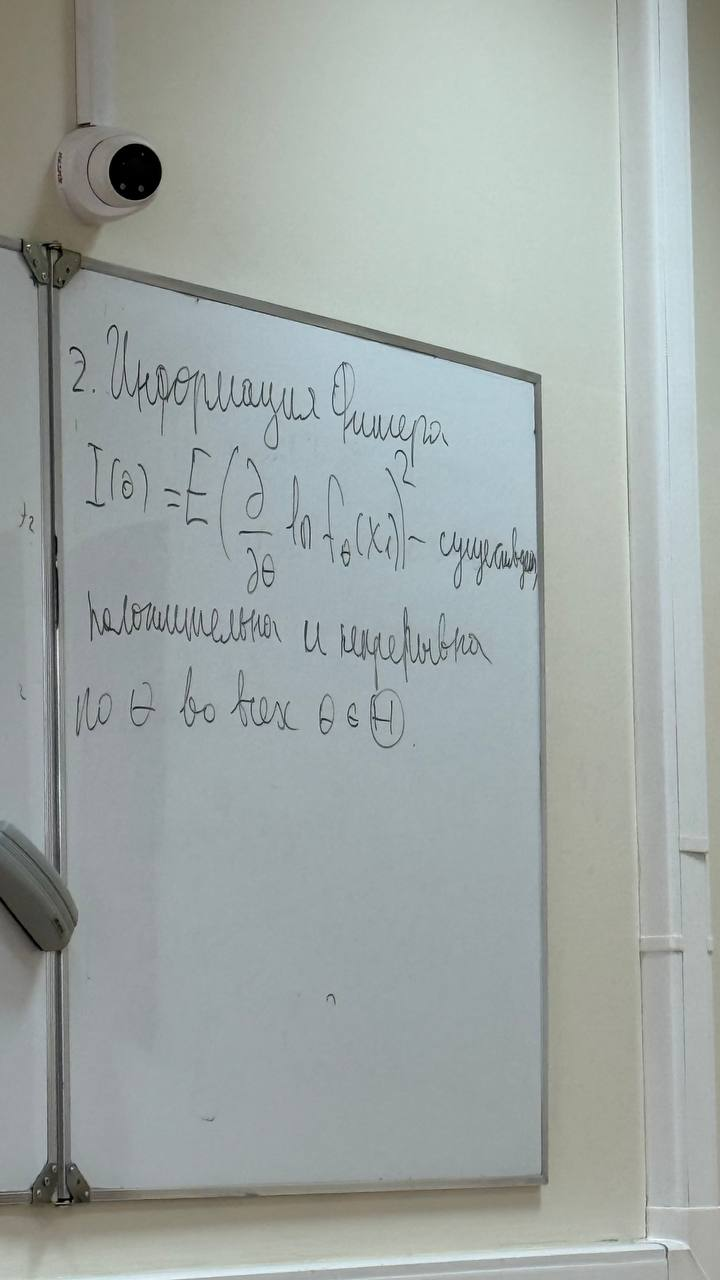 2. Информация Фишера
I(θ) = E(∂/∂θ ln f_θ(X₁))² - существует,
положительна и непрерывна
по θ во всех θ ∈ Θ.